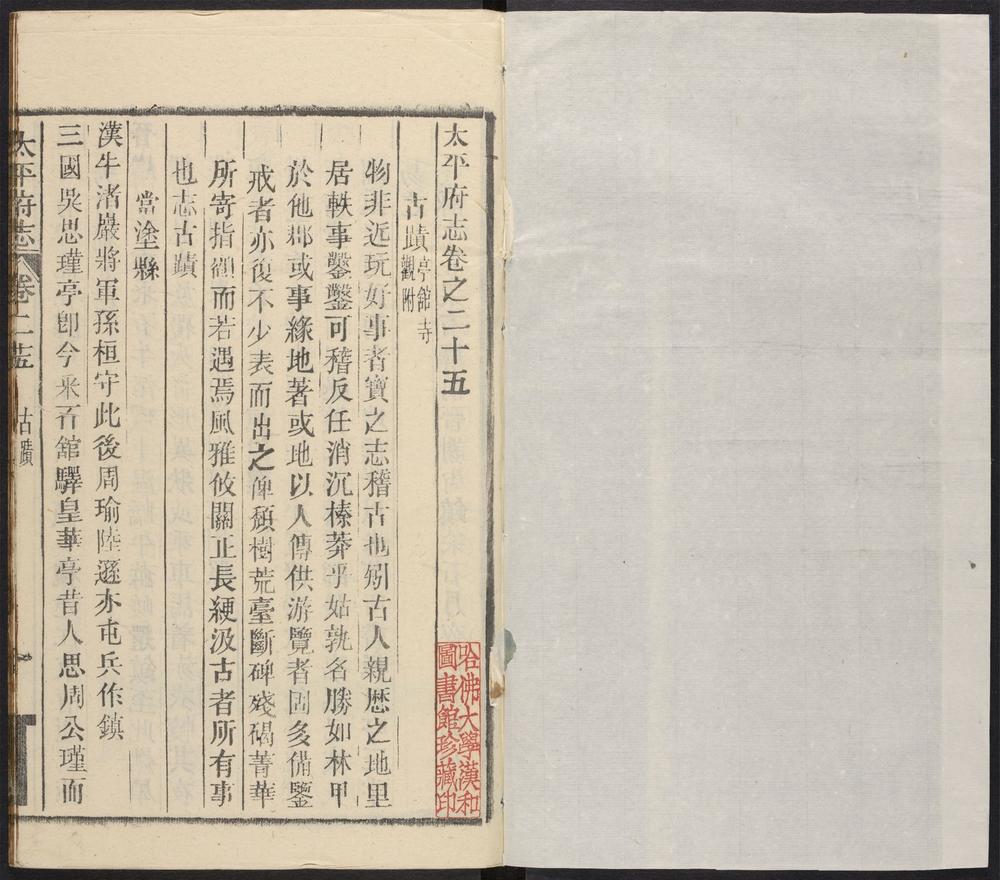 太平府志卷之二十五
古蹟亭館寺觀附
物非近玩好事者寶之志稽古也矧古人親歷之地里
居軼事鑿鑿可稽反任消沉榛莽乎姑孰名勝如林甲
於他郡或事緣地著或地以人傳供游覽者固多備鑒
戒者亦復不少表而出之俾頹樹荒臺斷碑殘碣菁華
所寄指顧而若遇焉風雅攸關正長綆汲古者所有事
也志古蹟
當塗縣
漢牛渚巖將軍孫桓守此後周瑜陸遜亦屯兵作鎮
三國吳思瑾亭卽今采石舘驛皇華亭昔人思周公瑾而
太平府志
卷二十五
古蹟
哈佛大學漢和
圖書館珍藏印